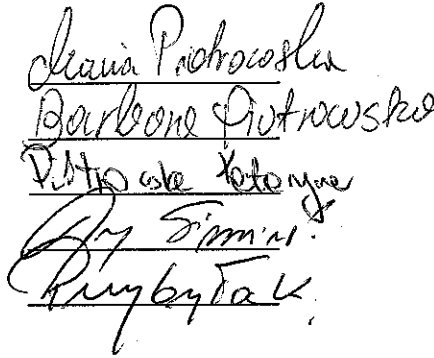 Maria Piotrowska
Barbara Piotrowska
Piotrowska Katarzyna
Przybylak